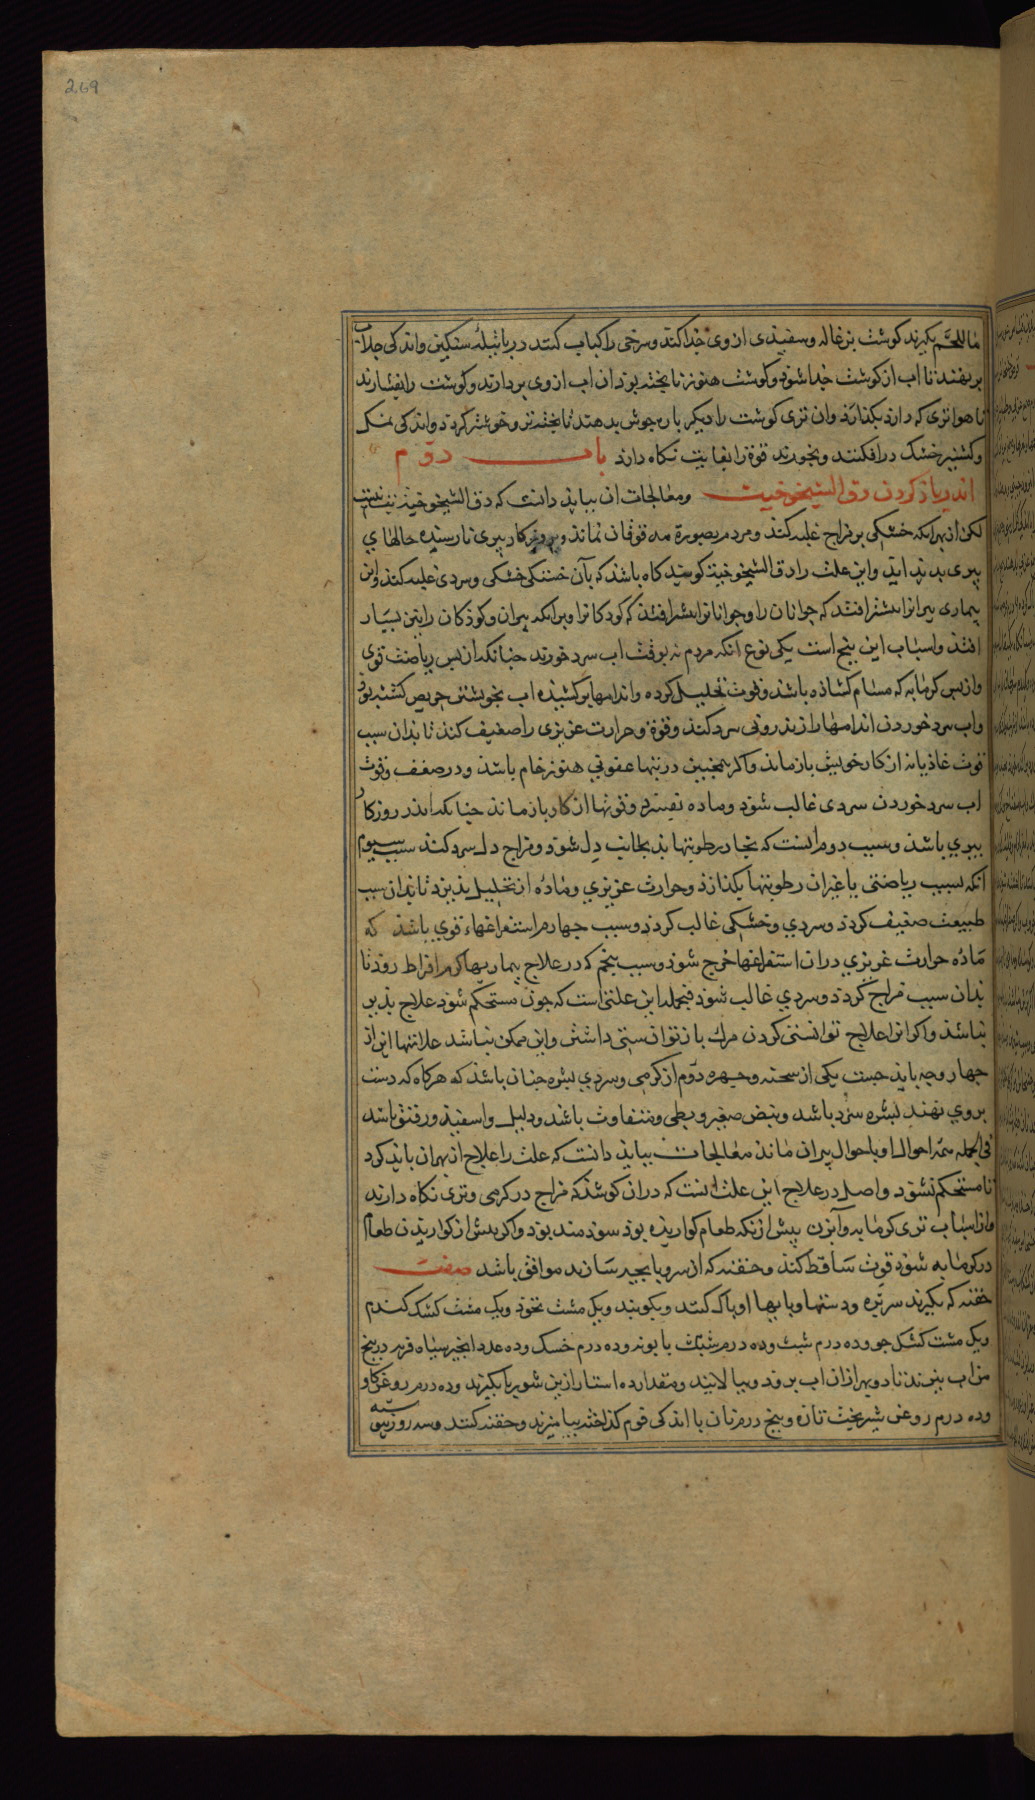 269
ما اللحم بکیرند کوشت بزغاله و سفیذی از وی جذا کنند و سرخی را کباب کنند در پاتیلهٔ سنکین و اندکی جلاب
بر نهند تا اب از کوشت جذا شوذ و کوشت هنوز ناپخته بوذ ان اب از وی بردارند و کوشت را بفشارند
تا هر تری که دارذ بکذارذ و ان تری کوشت را دیکر بار جوش بدهند تا پخته تر و خوشتر کردد و اندکی نمک
و کشنیز خشک در افکنند و بخورند قوة را بغایت نکاه دارذ باب دوم
اندر یاذ کردن دق الشیخوخیت و معالجات ان بباید دانست که دق الشیخوخیة تب نیست
لکن از بهر انکه خشکی بر مزاج غلبه کند و مردم بصورة مدقوقان نماند و پیری نارسیده حالهای
پیری بدید اید و این علت را دق الشیخوخیة کویند کاه باشذ که بآن خشکی سردی غلبه کند و این
بیماری پیرانرا بیشتر افتد که جوانان را و جوانانرا بیشتر افتد که کودکانرا و بر انکه پیران و کوذکان را بسیار
افتذ و اسباب این پنج است یکی نوع انکه مردم نه بوقت اب سرد خورند چنانکه از پس ریاضت قوی
و از پس کرمابه که مسام کشاذه باشذ و قوت تحلیل کرده و اندامها بر کشیذه اب بخویشتن حریص کشته بوذ
و اب سرد خوردن اندامها را از اندرونی سرد کند و قوة و حرارت غریزی را ضعیف کند تا بدان سبب
قوت غاذیه از کار خویش بازماند و اکر همچنین در تبها عفونی هنوز خام باشد و در ضعف قوت
اب سرد خوردن سردی غالب شوذ و ماده بفسرد و قوتها از کار بازماند چنانکه اندر روزکار
پیری باشذ و سبب دوم انست که بخار رطوبتها بد بجانب دل شوذ و مزاج دل سرد کند سبب سیوم
انکه بسبب ریاضتی یا غیر ان رطوبتها بکذازذ و حرارت غریزی و ماده ان تحلیل بذیرد تا بدان سبب
طبیعت ضعیف کردد و سردی و خشکی غالب کردد و سبب چهارم استفراغهاء قوی باشذ که
ماده حرارت غریزی در ان استفراغها خرج شوذ و سبب پنجم که در علاج بیماریها کرم افراط رود تا
بدان سبب مزاج کردد و سردی غالب شوذ فی الجمله این علتی است که چون مستحکم شوذ علاج بذیر
نباشذ و اکر انرا علاج توانستی کردن مرک باز توانستی داشتن و این ممکن نباشد علامتها این از
چهار وجه باید جست یکی از سحنه و چهره دوم از کرمی و سردی بشره چنان باشذ که هر کاه که دست
بر وی نهند بشره سرد باشد و نبض صغیر و بطی و متفاوت باشد و دلیل او سفید و رقیق باشد
فی الجمله همه احوال او باحوال پیران ماند معالجات بباید دانست که علت را علاج از بهر ان باید کرد
تا مستحکم نشود و اصل در علاج این علت انست که در ان کوشذ که مزاج در کرمی و تری نکاه دارند
و از اسباب تری کرمابه و آبزن پیش از انکه طعام کواریذه بوذ سوذمند بود و اکر پیش از کواریدن طعام
در کرمابه شوذ قوت ساقط کند و حقنه که از سر و پایچه سازند موافق باشد صفت
حقنه که بکیرند سر بره و دستها و پایها او پاک کنند و بکوبند و یک مشت نخود و یک مشت کشک کندم
و یک مشت کشک جو و ده درم شبت و ده درم بابونه و ده درم خسک و ده عدد انجیر سیاه فربه در پنج
من اب بپزند تا دو بهر از ان اب برود و بپالایند و مقدار ده استار ازین شوربا بکیرند و ده درم روغن کاو
و ده درم روغن شیربخت تازه و پنج درم بان با اندکی موم کذاخته بیامیزند و حقنه کنند و سه روز پیوسته